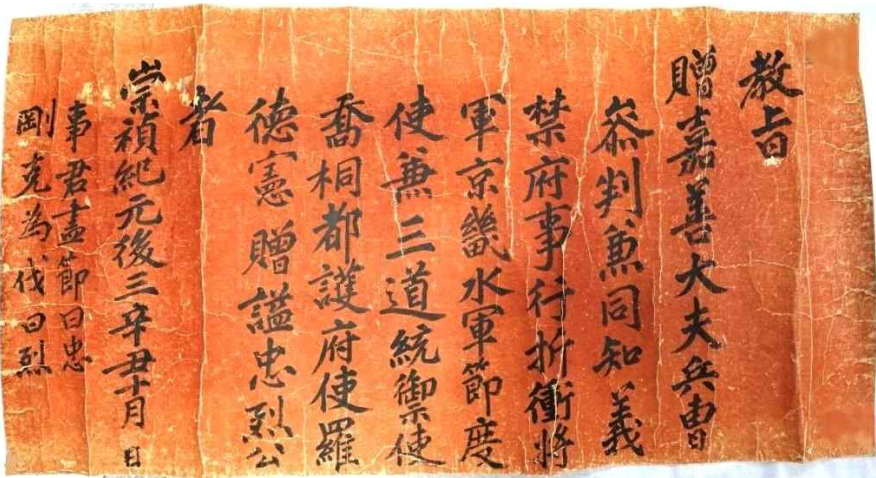 教旨
贈嘉善大夫兵曹
叅判兼同知義
禁府事行折衝將
軍京畿水軍節度
使兼三道統禦使
喬桐都護府使羅
德憲贈謚忠烈公
者
崇禎紀元後三辛丑十月 日
事君盡節曰忠
剛克爲伐曰烈